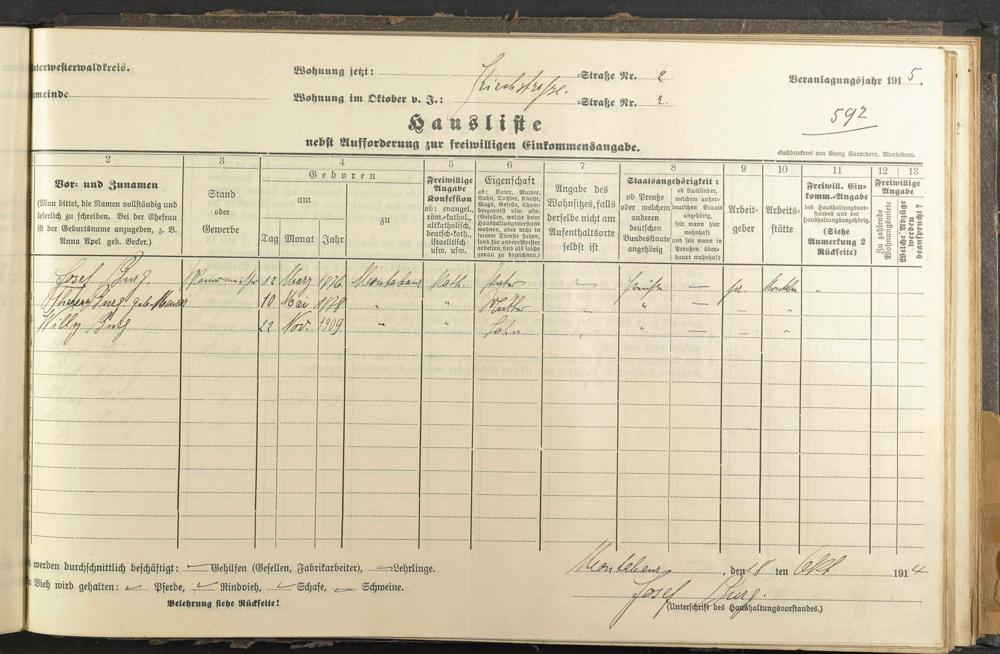 nterwesterwaldkreis.
Wohnung jetzt: Kirchstraße. =Straße Nr. 2
Veranlagungsjahr 1915.
emeinde
Wohnung im Oktober v. J.: =Straße Nr. 2.
592
Hausliste
nebst Aufforderung zur freiwilligen Einkommensangabe.
Buchdruckerei von Georg Sauerborn, Montabaur.
2 3 4 5 6 7 8 9 10 11 12 13
Vor- und Zunamen
(Man bittet, die Namen vollständig und
leserlich zu schreiben. Bei der Ehefrau
ist der Geburtsname anzugeben, z. B.
Anna Apel geb. Becker.)
Stand
oder
Gewerbe
Geboren
am
zu
Tag Monat Jahr
Freiwillige
Angabe
Konfession
ob: evangel.,
röm.-kathol.,
altkatholisch,
deutsch-kath.,
israelitisch
usw. usw.
Eigenschaft
ob: Vater, Mutter,
Sohn, Tochter, Knecht,
Magd, Geselle, Cham-
bregarnist usw. usw.
(Gesellen, welche beim
Haushaltungsvorstand
wohnen, aber nicht in
seinem Dienste stehen,
sind für andere Meister
arbeiten, sind als solche
genau zu bezeichnen.)
Angabe des
Wohnsitzes, falls
derselbe nicht am
Aufenthaltsorte
selbst ist
Staatsangehörigkeit:
ob Preuße
oder welchem
anderen
deutschen
Bundesstaate
angehörig
ob Ausländer,
welchem außer-
deutschen Staate
angehörig,
seit wann hier
wohnhaft
und seit wann in
Preußen über-
haupt wohnhaft
Arbeit-
geber
Arbeits-
stätte
Freiwill. Ein-
komm.-Angabe
des Haushaltungsvor-
standes und der
Haushaltungsangehörig.
(Siehe
Anmerkung 2
Rückseite)
Freiwillige
Angabe
Zu zahlende
Wohnungsmiete
Welche Abzüge
werden
beansprucht?
Josef 12 März 1876 Montabaur Kath. Vater — Preuße —
geb. 10 Mai 1878 " " Mutter - " —
Willy 22 Nov. 1909 " " Sohn " —
werden durchschnittlich beschäftigt: — Gehilfen (Gesellen, Fabrikarbeiter), — Lehrlinge.
Vieh wird gehalten: — Pferde, — Rindvieh, — Schafe, — Schweine.
Belehrung siehe Rückseite!
Montabaur, den 18 ten Okt 1914
Josef
(Unterschrift des Haushaltungsvorstandes.)